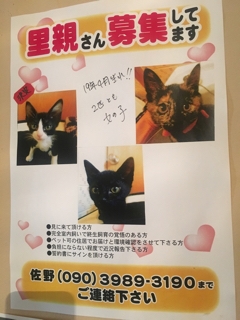 里親さん募集して
ます
19年4月生れ!!
2匹とも
女の子
●見に来て頂ける方
●完全室内飼いで終生飼育の覚悟のある方
●ペット可の住居でお届けと環境確認をさせて下さる方
●負担にならない程度で近況報告下さる方
●誓約書にサインを頂ける方
佐野(090)3989-3190まで
ご連絡下さい